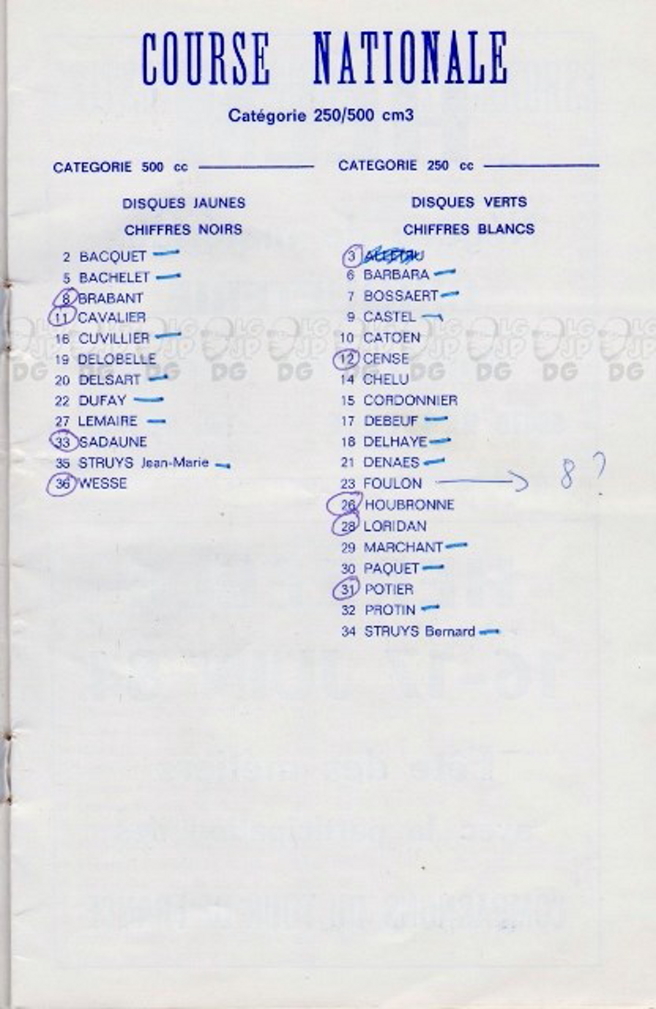 COURSE NATIONALE
Catégorie 250/500 cm3
CATEGORIE 500 cc
DISQUES JAUNES
CHIFFRES NOIRS
2 BACQUET
5 BACHELET
8 BRABANT
11 CAVALIER
16 CUVILLIER
19 DELOBELLE
20 DELSART
22 DUFAY
27 LEMAIRE
33 SADAUNE
35 STRUYS Jean-Marie
36 WESSE
CATEGORIE 250 cc
DISQUES VERTS
CHIFFRES BLANCS
3
6 BARBARA
7 BOSSAERT
9 CASTEL
10 CATOEN
12 CENSE
14 CHELU
15 CORDONNIER
17 DEBEUF
18 DELHAYE
21 DENAES
23 FOULON 8 ?
26 HOUBRONNE
28 LORIDAN
29 MARCHANT
30 PAQUET
31 POTIER
32 PROTIN
34 STRUYS Bernard